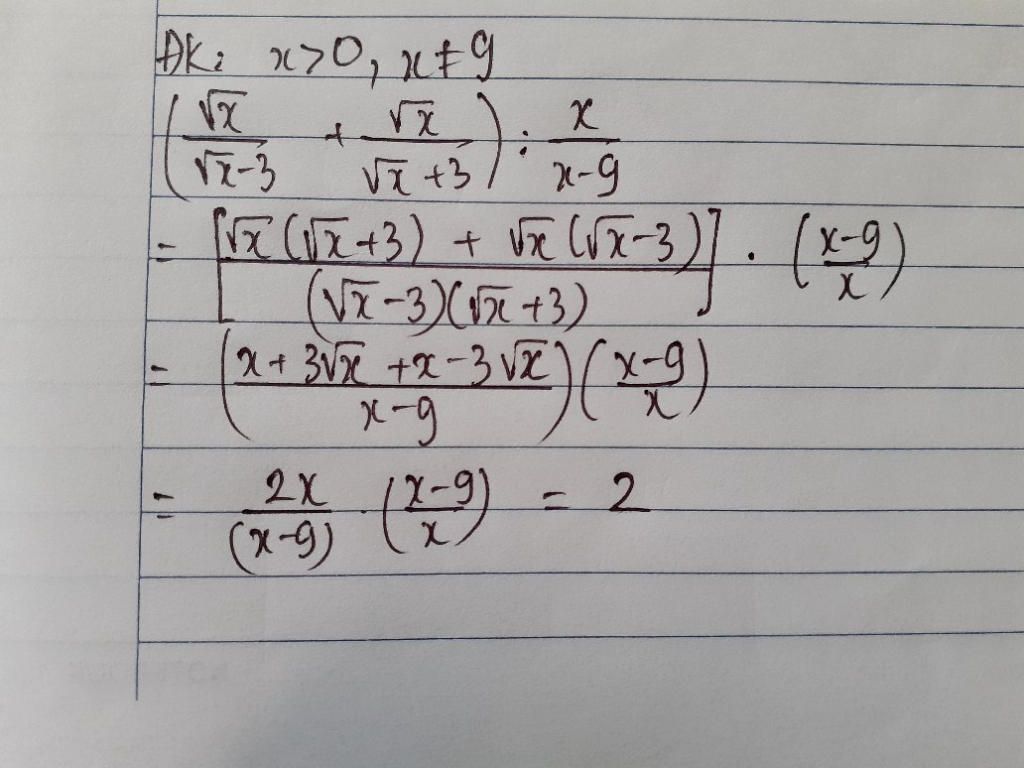 ĐK: x>0, x≠9
(√x/(√x-3) + √x/(√x+3)) : x/(x-9)
= [(√x(√x+3) + √x(√x-3))/((√x-3)(√x+3))] · ((x-9)/x)
= ((x+3√x+x-3√x)/(x-9))((x-9)/x)
= 2x/(x-9) · ((x-9)/x) = 2